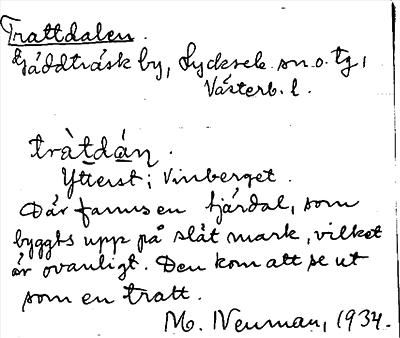 Trattdalen.
Gäddträsk by, Lycksele sn. o. tg,
Västerb. l.
tràtdán.
Ytterst i Vinberget.
Där fanns en tjärdal, som
byggts upp på slät mark, vilket
är ovanligt. Den kom att se ut
som en tratt.
M. Neuman, 1934.